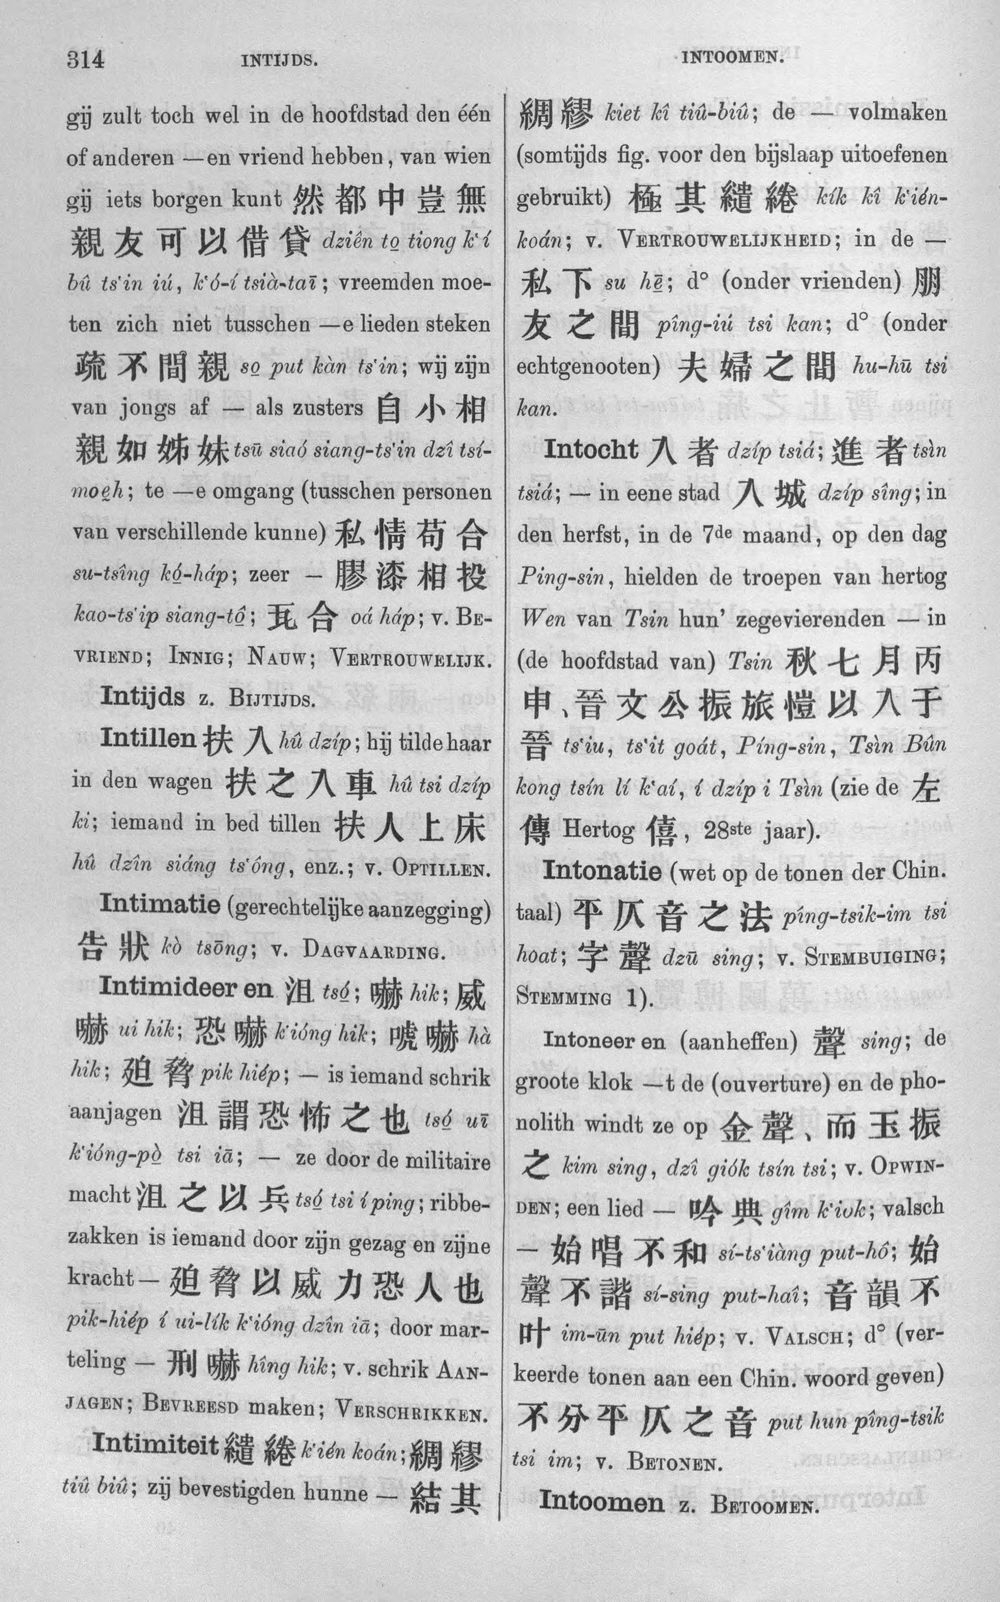 314
INTIJDS.
INTOOMEN.
gij zult toch wel in de hoofdstad den één
of anderen —en vriend hebben, van wien
gij iets borgen kunt 然都中豈無
親友可以借貸 dziên to̤ tiong k‘í
bû ts‘in iú, k‘ó-í tsià-taī; vreemden moe-
ten zich niet tusschen —e lieden steken
疏不間親 so̤ put kàn ts‘in; wij zijn
van jongs af — als zusters 自小相
親如姊妹 tsū siaó siang-ts‘in dzî tsí-
moēh; te —e omgang (tusschen personen
van verschillende kunne) 私情苟合
su-tsîng kó̤-háp; zeer — 膠漆相投
kao-ts‘ip siang-tô̤; 瓦合 oá háp; v. BE-
VRIEND; INNIG; NAUW; VERTROUWELIJK.
Intijds z. BIJTIJDS.
Intillen 扶入 hû dzíp; hij tilde haar
in den wagen 扶之入車 hû tsi dzíp
ki; iemand in bed tillen 扶人上床
hû dzîn siáng ts‘ông, enz.; v. OPTILLEN.
Intimatie (gerechtelijke aanzegging)
告狀 kò tsōng; v. DAGVAARDING.
Intimideeren 沮 tsó̤; 嚇 hik; 威
嚇 ui hik; 恐嚇 k‘ióng hik; 唬嚇 hà
hik; 廹脅 pik hiép; — is iemand schrik
aanjagen 沮謂恐怖之也 tsó̤ uī
k‘ióng-pò̤ tsi iā; — ze door de militaire
macht 沮之以兵 tsó̤ tsi í ping; ribbe-
zakken is iemand door zijn gezag en zijne
kracht — 廹脅以威力恐人也
pik-hiép í ui-lík k‘ióng dzîn iā; door mar-
teling — 刑嚇 hîng hik; v. schrik AAN-
JAGEN; BEVREESD maken; VERSCHRIKKEN.
Intimiteit 繾綣 k‘ién koán; 綢繆
tiû biû; zij bevestigden hunne — 結其
綢繆 kiet kî tiû-biû; de — volmaken
(somtijds fig. voor den bijslaap uitoefenen
gebruikt) 極其繾綣 kík kî k‘ién-
koán; v. VERTROUWELIJKHEID; in de —
私下 su hē̤; d° (onder vrienden) 朋
友之間 pîng-iú tsi kan; d° (onder
echtgenooten) 夫婦之間 hu-hū tsi
kan.
Intocht 入者 dzíp tsiá; 進者 tsìn
tsiá; — in eene stad 入城 dzíp sîng; in
den herfst, in de 7de maand, op den dag
Ping-sin, hielden de troepen van hertog
Wen van Tsin hun' zegevierenden — in
(de hoofdstad van) Tsin 秋七月丙
申、晉文公振旅愷以入于
晉 ts‘iu, ts‘it goát, Píng-sin, Tsìn Bûn
kong tsín lí k‘aí, í dzíp i Tsìn (zie de 左
傳 Hertog 僖, 28ste jaar).
Intonatie (wet op de tonen der Chin.
taal) 平仄音之法 pîng-tsik-im tsi
hoat; 字聲 dzū sing; v. STEMBUIGING;
STEMMING 1).
Intoneeren (aanheffen) 聲 sing; de
groote klok —t de (ouverture) en de pho-
nolith windt ze op 金聲、而玉振
之 kim sing, dzî giók tsín tsi; v. OPWIN-
DEN; een lied — 吟典 gîm k‘iok; valsch
— 始唱不和 sí-ts‘iàng put-hô; 始
聲不諧 sí-sing put-haî; 音韻不
叶 im-ūn put hiép; v. VALSCH; d° (ver-
keerde tonen aan een Chin. woord geven)
不分平仄之音 put hun pîng-tsik
tsi im; v. BETONEN.
Intoomen z. BETOOMEN.